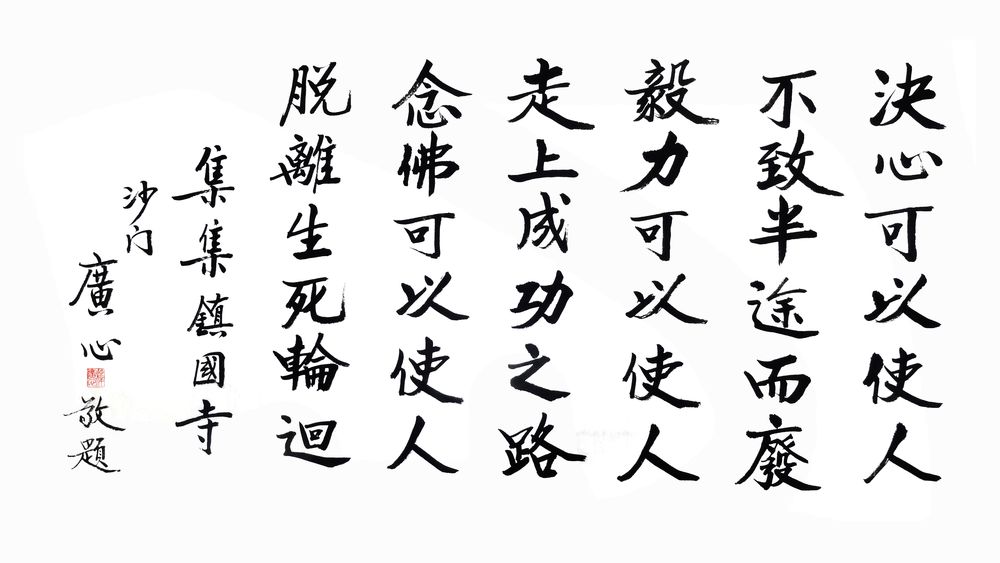 決心可以使人
不致半途而廢
毅力可以使人
走上成功之路
念佛可以使人
脱離生死輪迴
集集鎮國寺
沙门
廣心
敬題